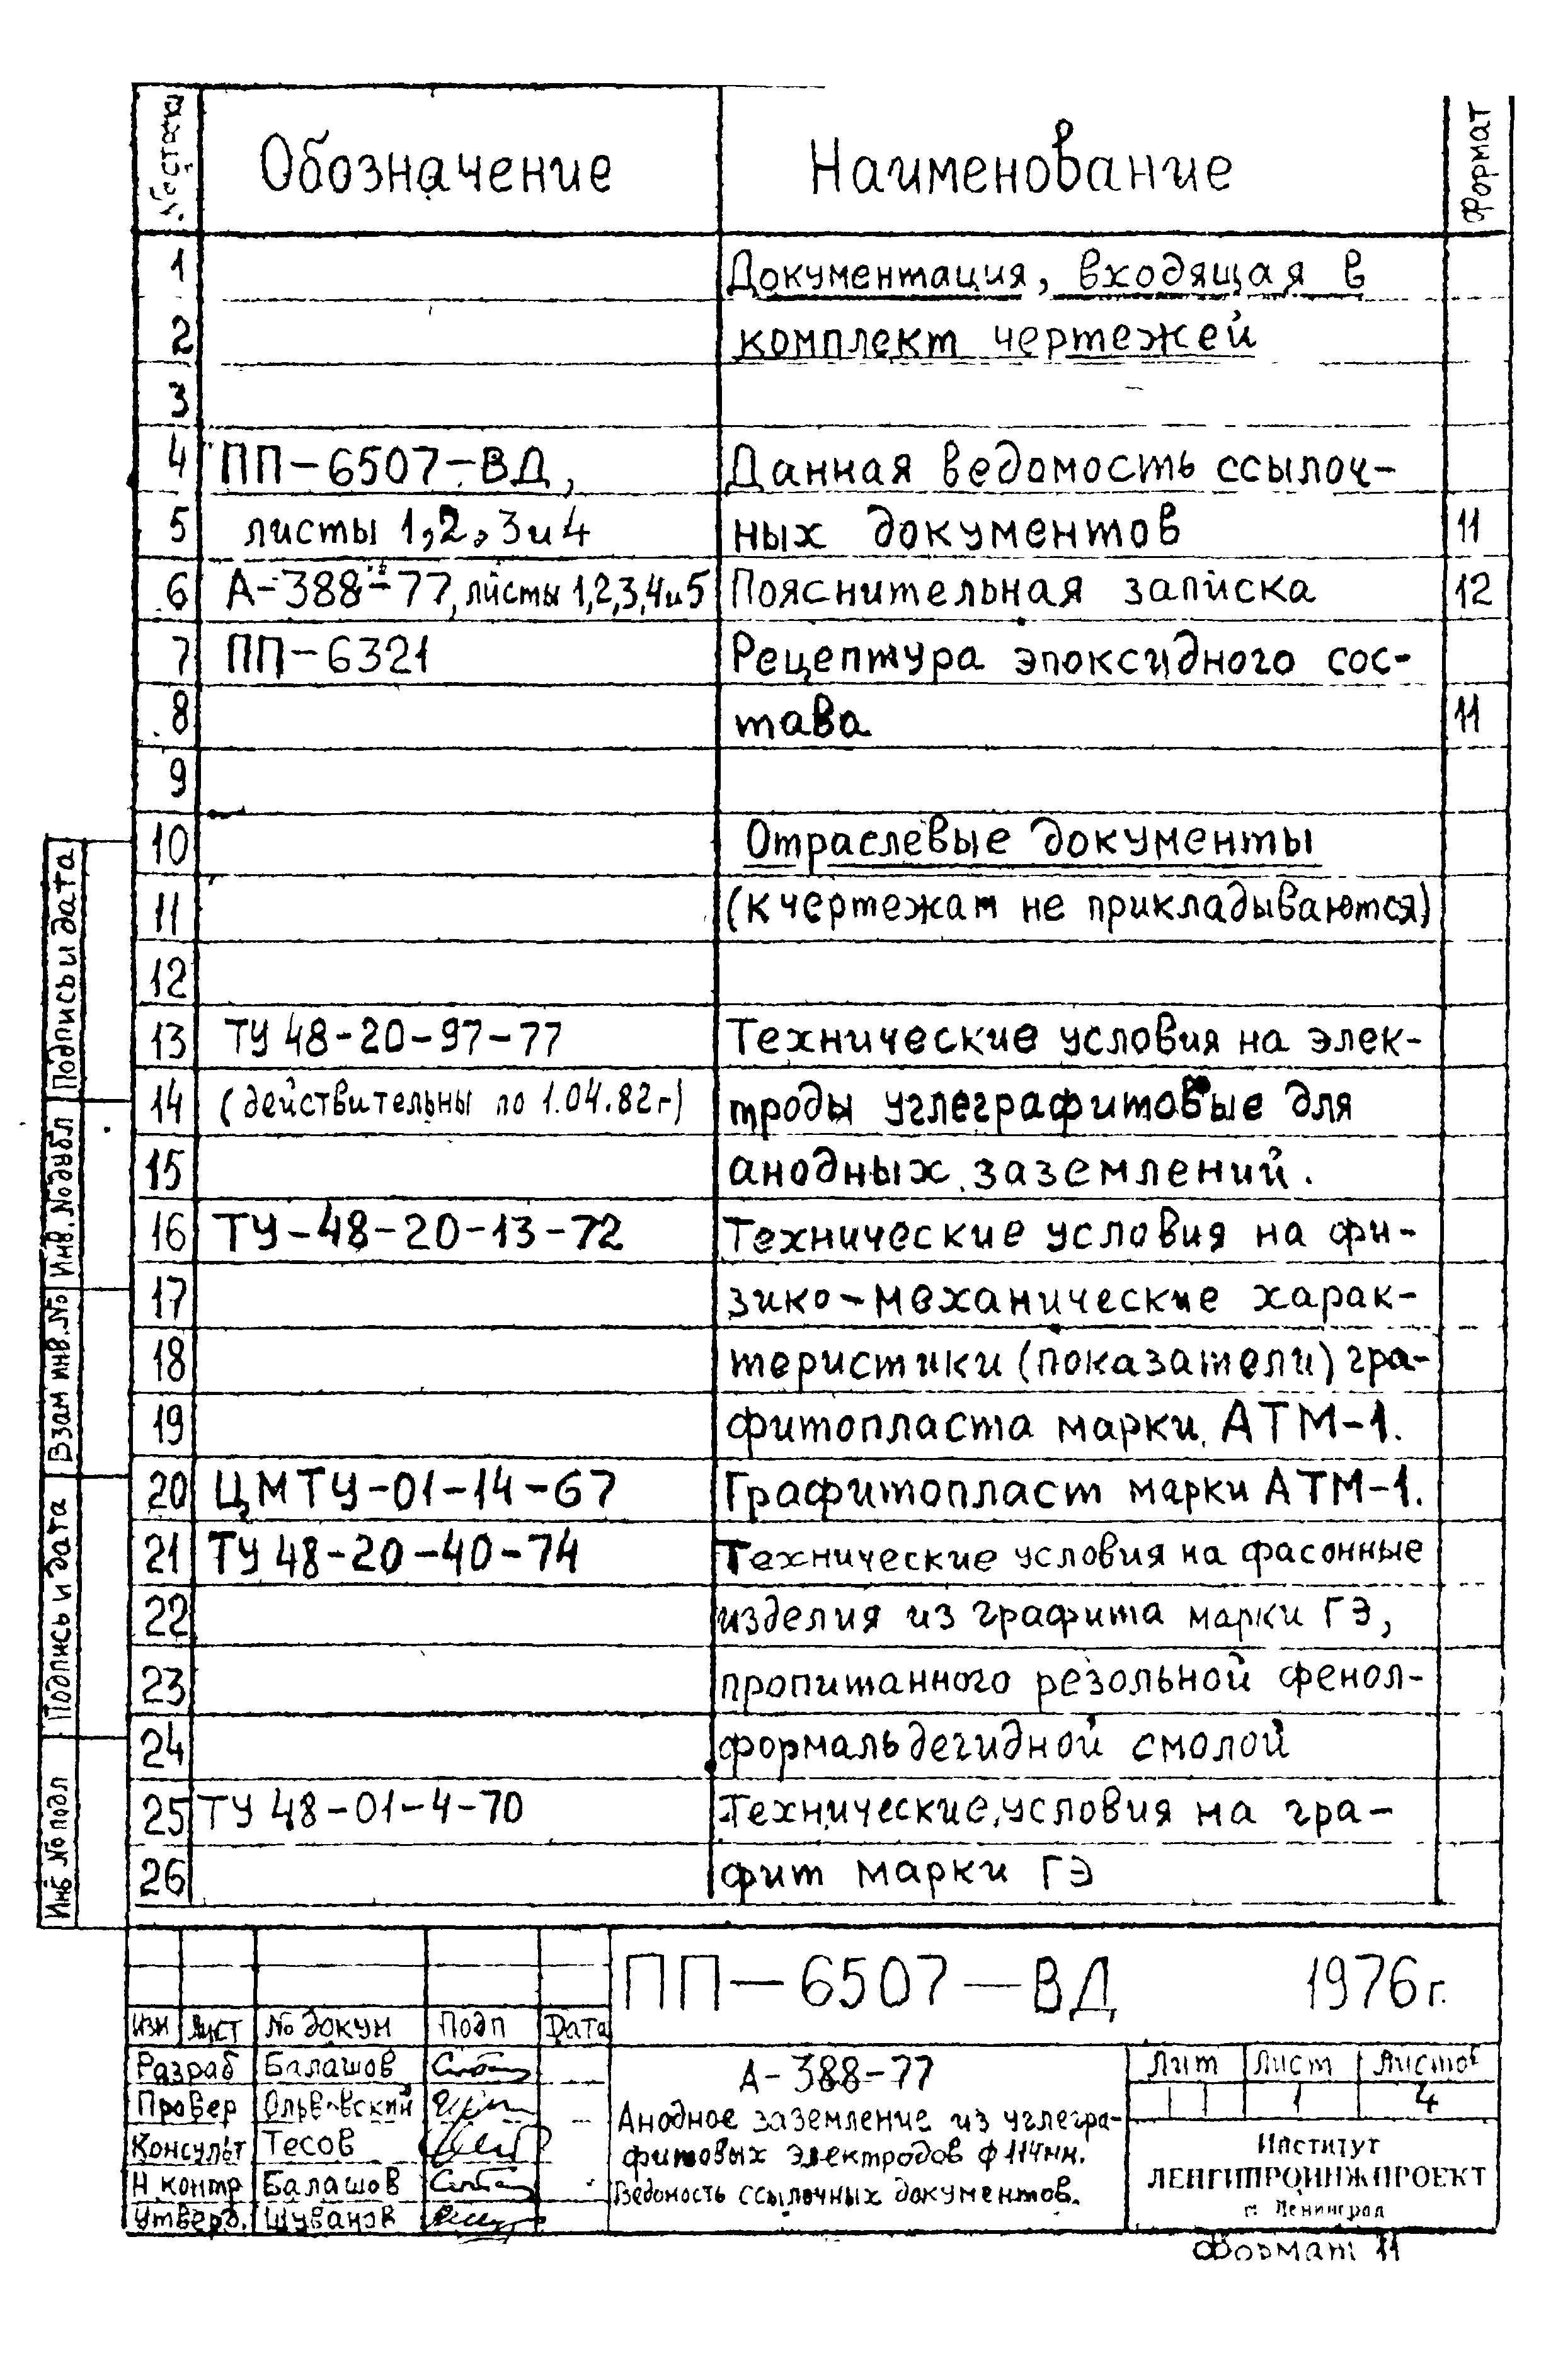 № строки Обозначение Наименование Формат
1 Документация, входящая в
2 комплект чертежей
3
4 ПП-6507-ВД, Данная ведомость ссылоч-
5 листы 1,2,3 и 4 ных документов 11
6 А-388-77, листы 1,2,3,4 и 5 Пояснительная записка 12
7 ПП-6321 Рецептура эпоксидного сос-
8 тава 11
9
10 Отраслевые документы
11 (к чертежам не прикладываются)
12
13 ТУ 48-20-97-77 Технические условия на элек-
14 (действительны по 1.04.82г) троды углеграфитовые для
15 анодных заземлений.
16 ТУ-48-20-13-72 Технические условия на фи-
17 зико-механические харак-
18 теристики (показатели) гра-
19 фитопласта марки АТМ-1.
20 ЦМТУ-01-14-67 Графитопласт марки АТМ-1.
21 ТУ 48-20-40-74 Технические условия на фасонные
22 изделия из графита марки ГЭ,
23 пропитанного резольной фенол-
24 формальдегидной смолой
25 ТУ 48-01-4-70 Технические условия на гра-
26 фит марки ГЭ
Подпись и дата
Инв. № дубл
Взам инв. №
Подпись и дата
Инв № подл
ПП-6507-ВД 1976г.
Изм Лист № докум Подп Дата
Разраб Балашов
Провер Ольвовский
Консульт Тесов
Н контр Балашов
Утверд. Шуванов
А-388-77
Анодное заземление из углегра-
фитовых электродов ф 114мм.
Ведомость ссылочных документов.
Лит Лист Листов
1 4
Институт
ЛЕНГИПРОИНЖПРОЕКТ
г. Ленинград
Формат 11